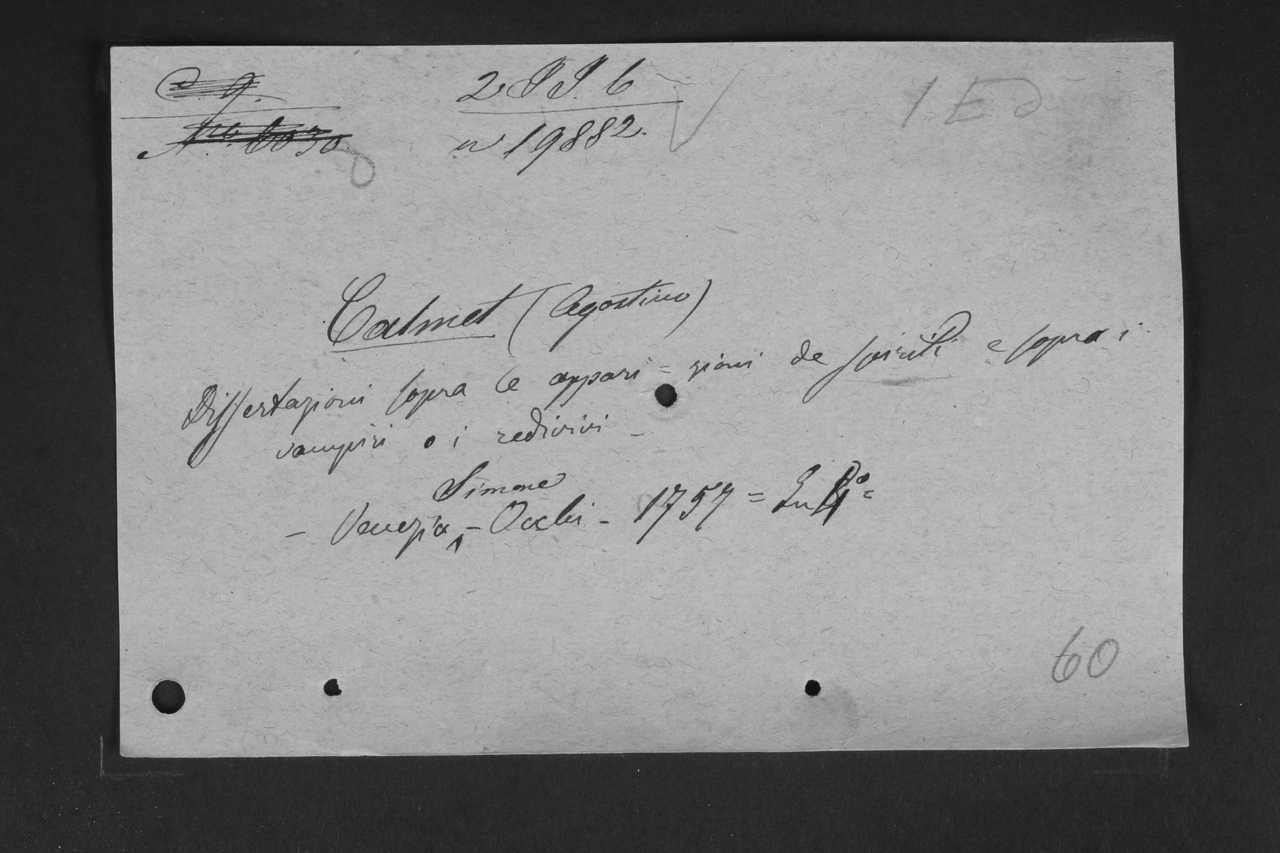 2 J J. 6
n 19882.
1 Ed
Calmet (Agostino)
Dissertazioni sopra le appari = zioni de spiriti e sopra i
vampiri o i redivivi -
Simone
- Venezia - Occhi - 1757 = In 4° =
60